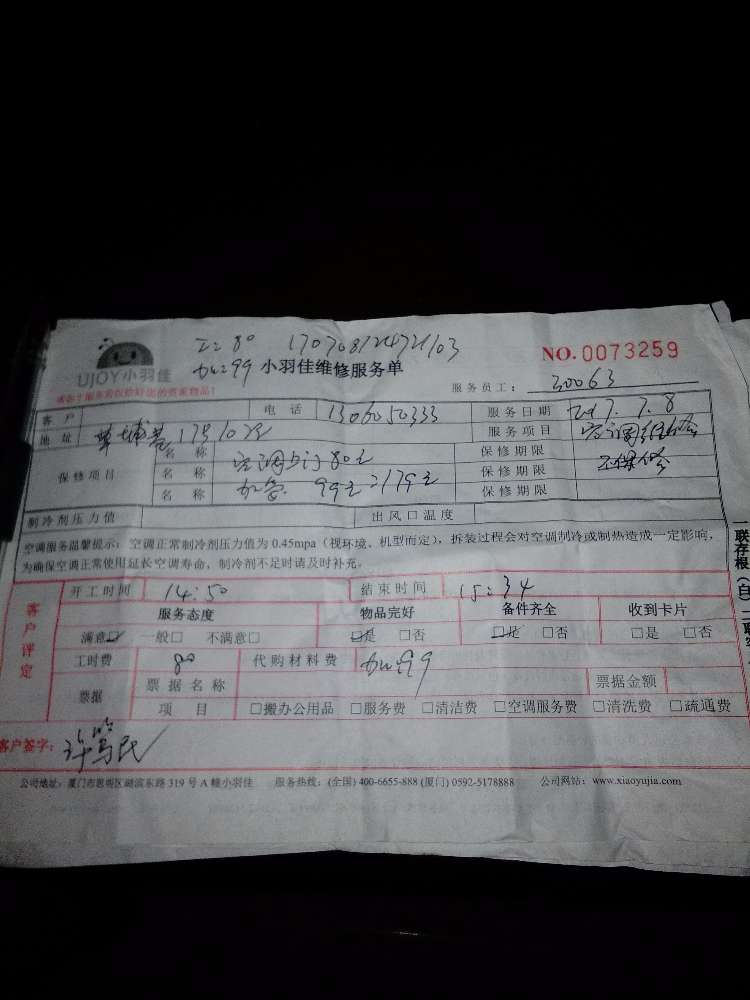 工=80 17070812472103
加=99 小羽佳维修服务单 NO.0073259
UJOY小羽佳
服务员工： 30063
客户 电话 1306050333 服务日期 2017.7.8
地址 175 服务项目 空调
保修项目 名称 空调 80元 保修期限 不保修
名称 加 99元=179元 保修期限
名称 保修期限
制冷剂压力值 出风口温度
空调服务温馨提示：空调正常制冷剂压力值为0.45mpa（视环境、机型而定），拆装过程会对空调制冷或制热造成一定影响，
为确保空调正常使用延长空调寿命，制冷剂不足时请及时补充。
开工时间 14:50 结束时间 15:34
客户评定
服务态度 物品完好 备件齐全 收到卡片
满意☑ 一般□ 不满意□ ☑是 □否 ☑是 □否 □是 □否
工时费 80 代购材料费 加=99
票据 票据名称 票据金额
项目 □搬办公用品 □服务费 □清洁费 □空调服务费 □清洗费 □疏通费
客户签字：
公司地址：厦门市思明区湖滨东路319号A幢小羽佳 服务热线：(全国) 400-6655-888 (厦门) 0592-5178888 公司网站：www.xiaoyujia.com
联存根（白）